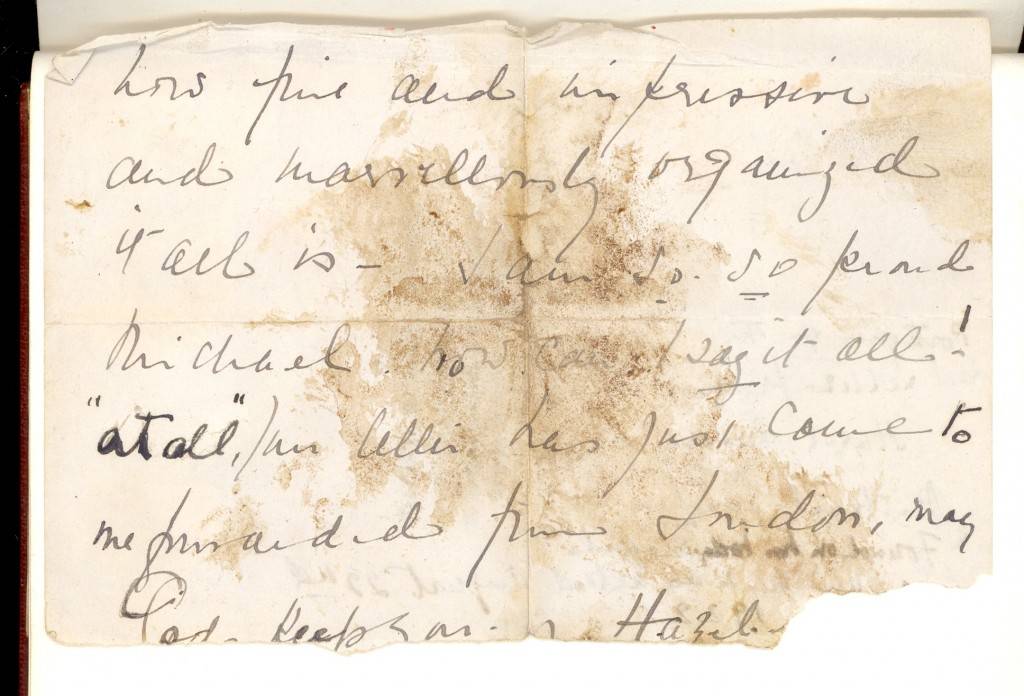 how fine and impressive
and marvellously organized
it all is - I am so. so proud
Michael. how can I say it all!
"at all", Yr letter has just come to
me forwarded from London, may
God keep you. Hazel